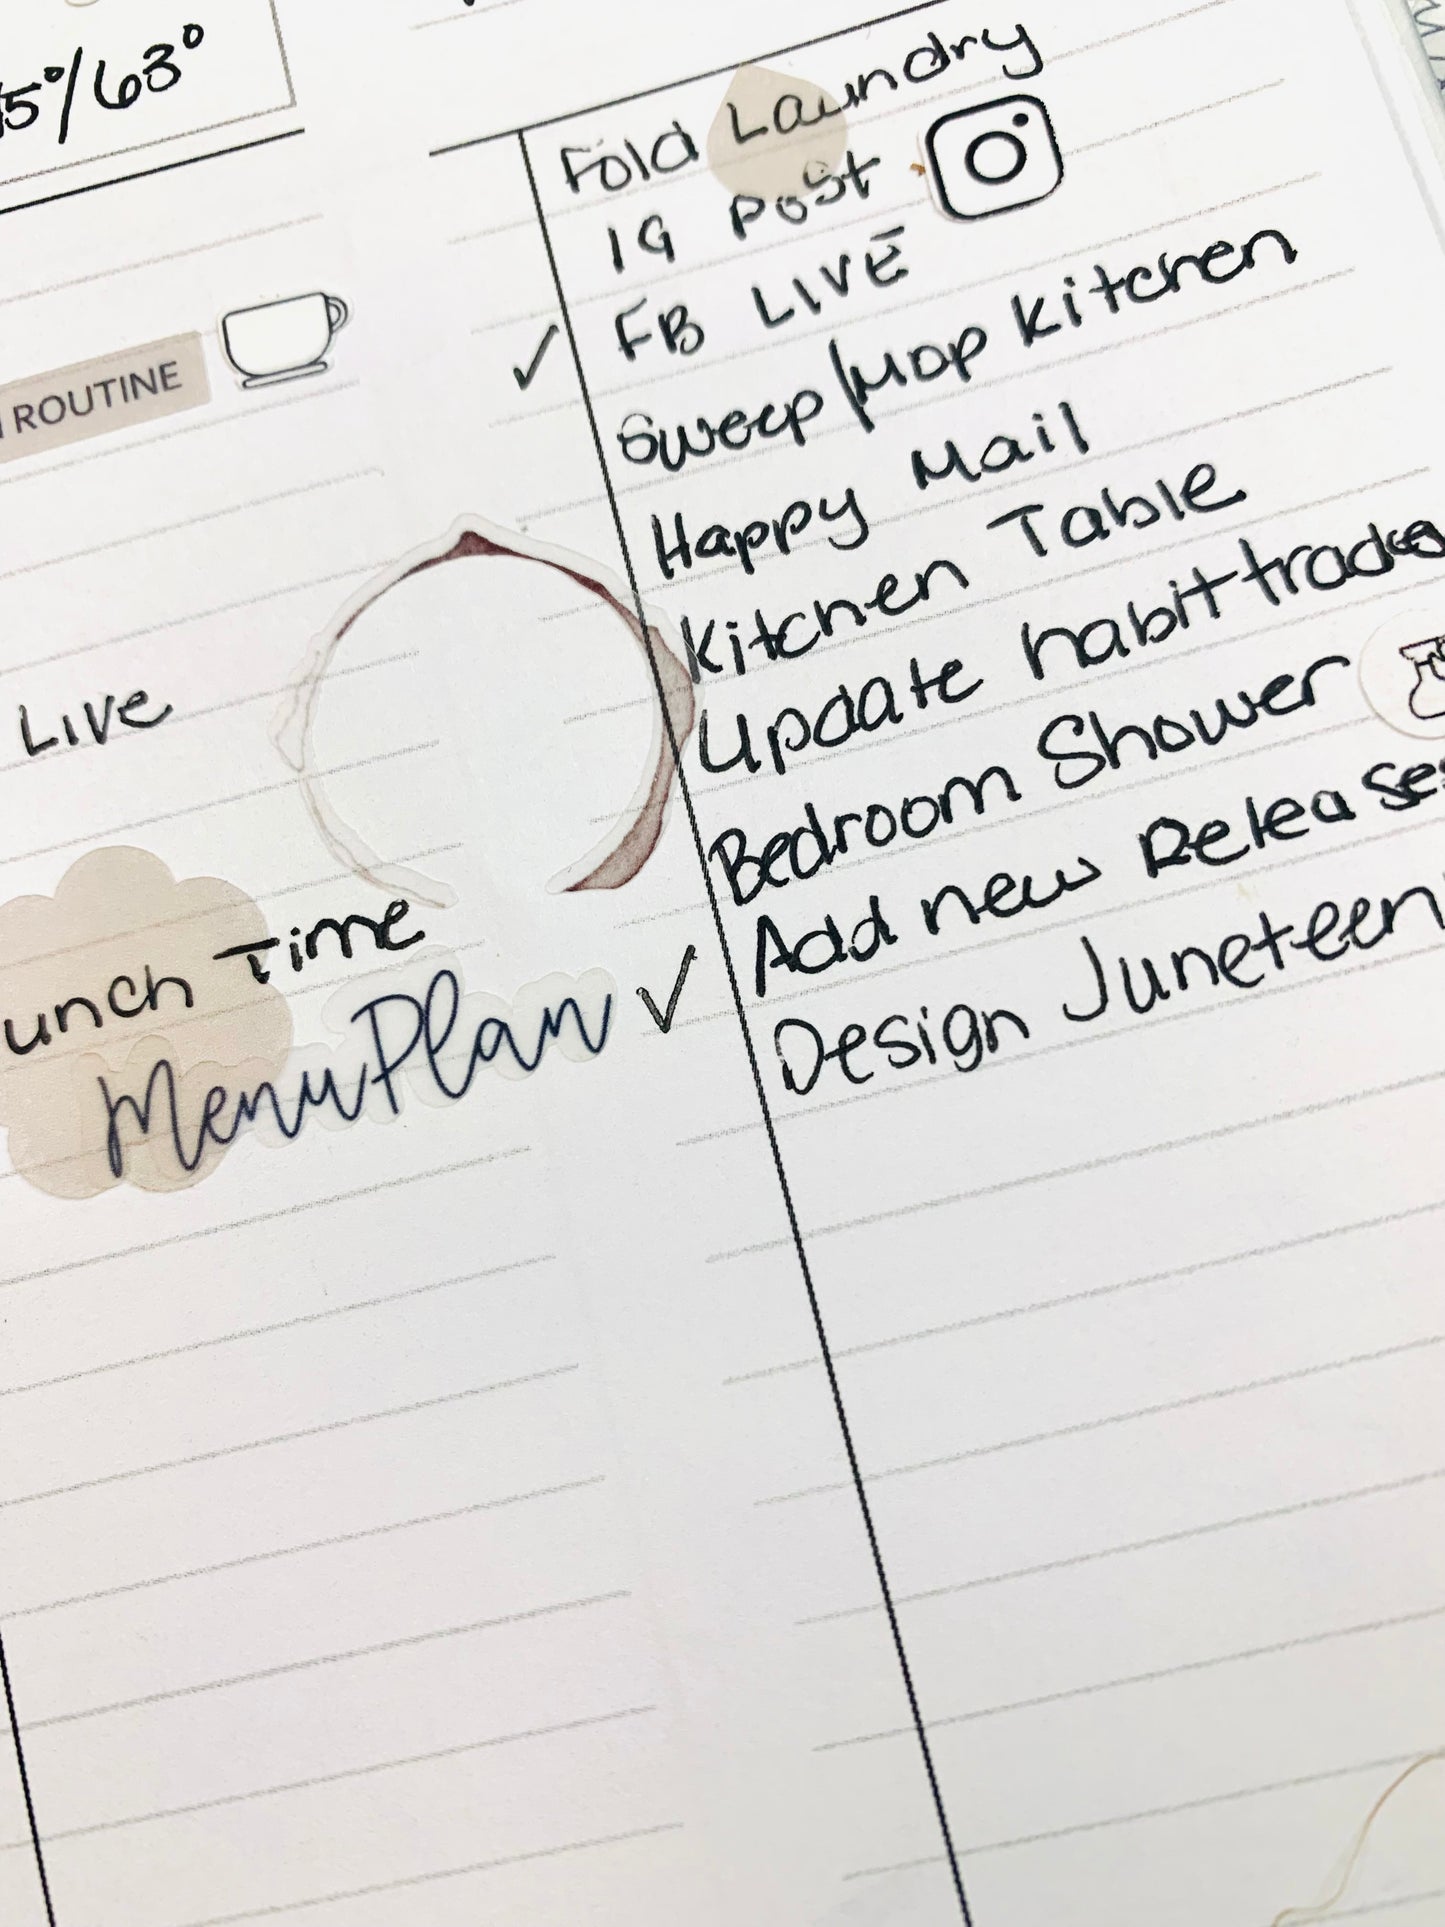 5°/63°
ROUTINE
Live
unch Time
Menu Plan
Fold Laundry
IG Post
FB LIVE
Sweep/Mop Kitchen
Happy Mail
Kitchen Table
Update habit
Bedroom Shower
Add new Releases
Design Juneteen